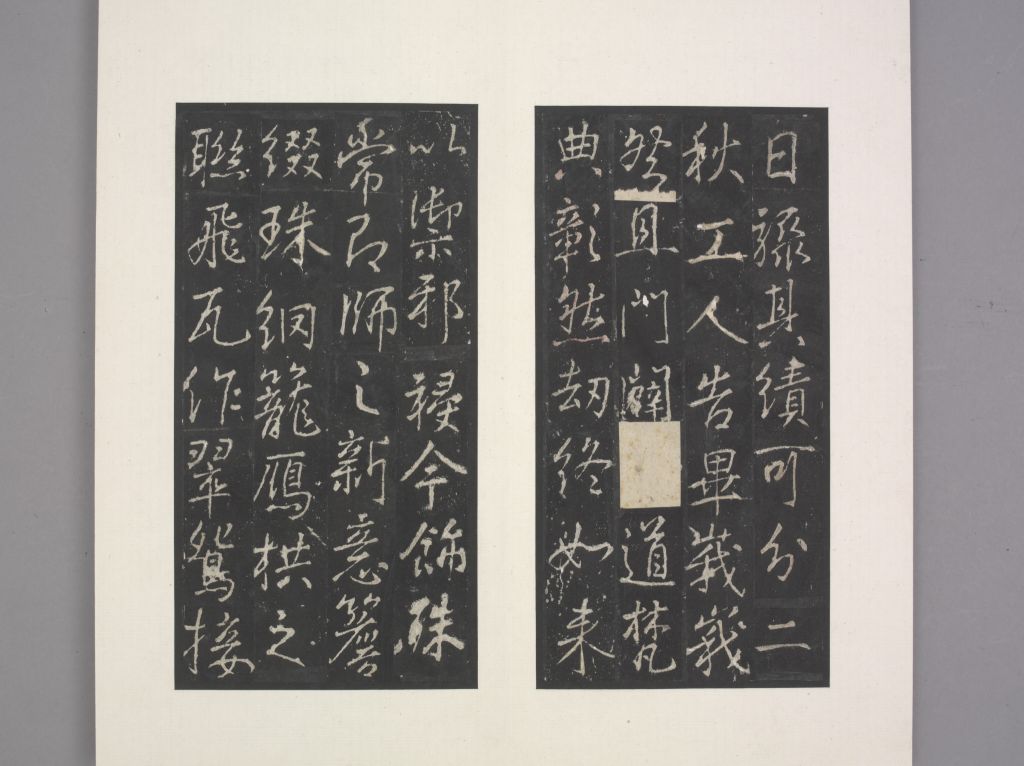 日其績可分二
秋工人告畢峩峩
且門闢道梵
典彰然劫終如来
以禦邪祲今飾殊
常即師之新意簷
綴珠網籠鴈栱之
聯飛瓦作翠鴛接